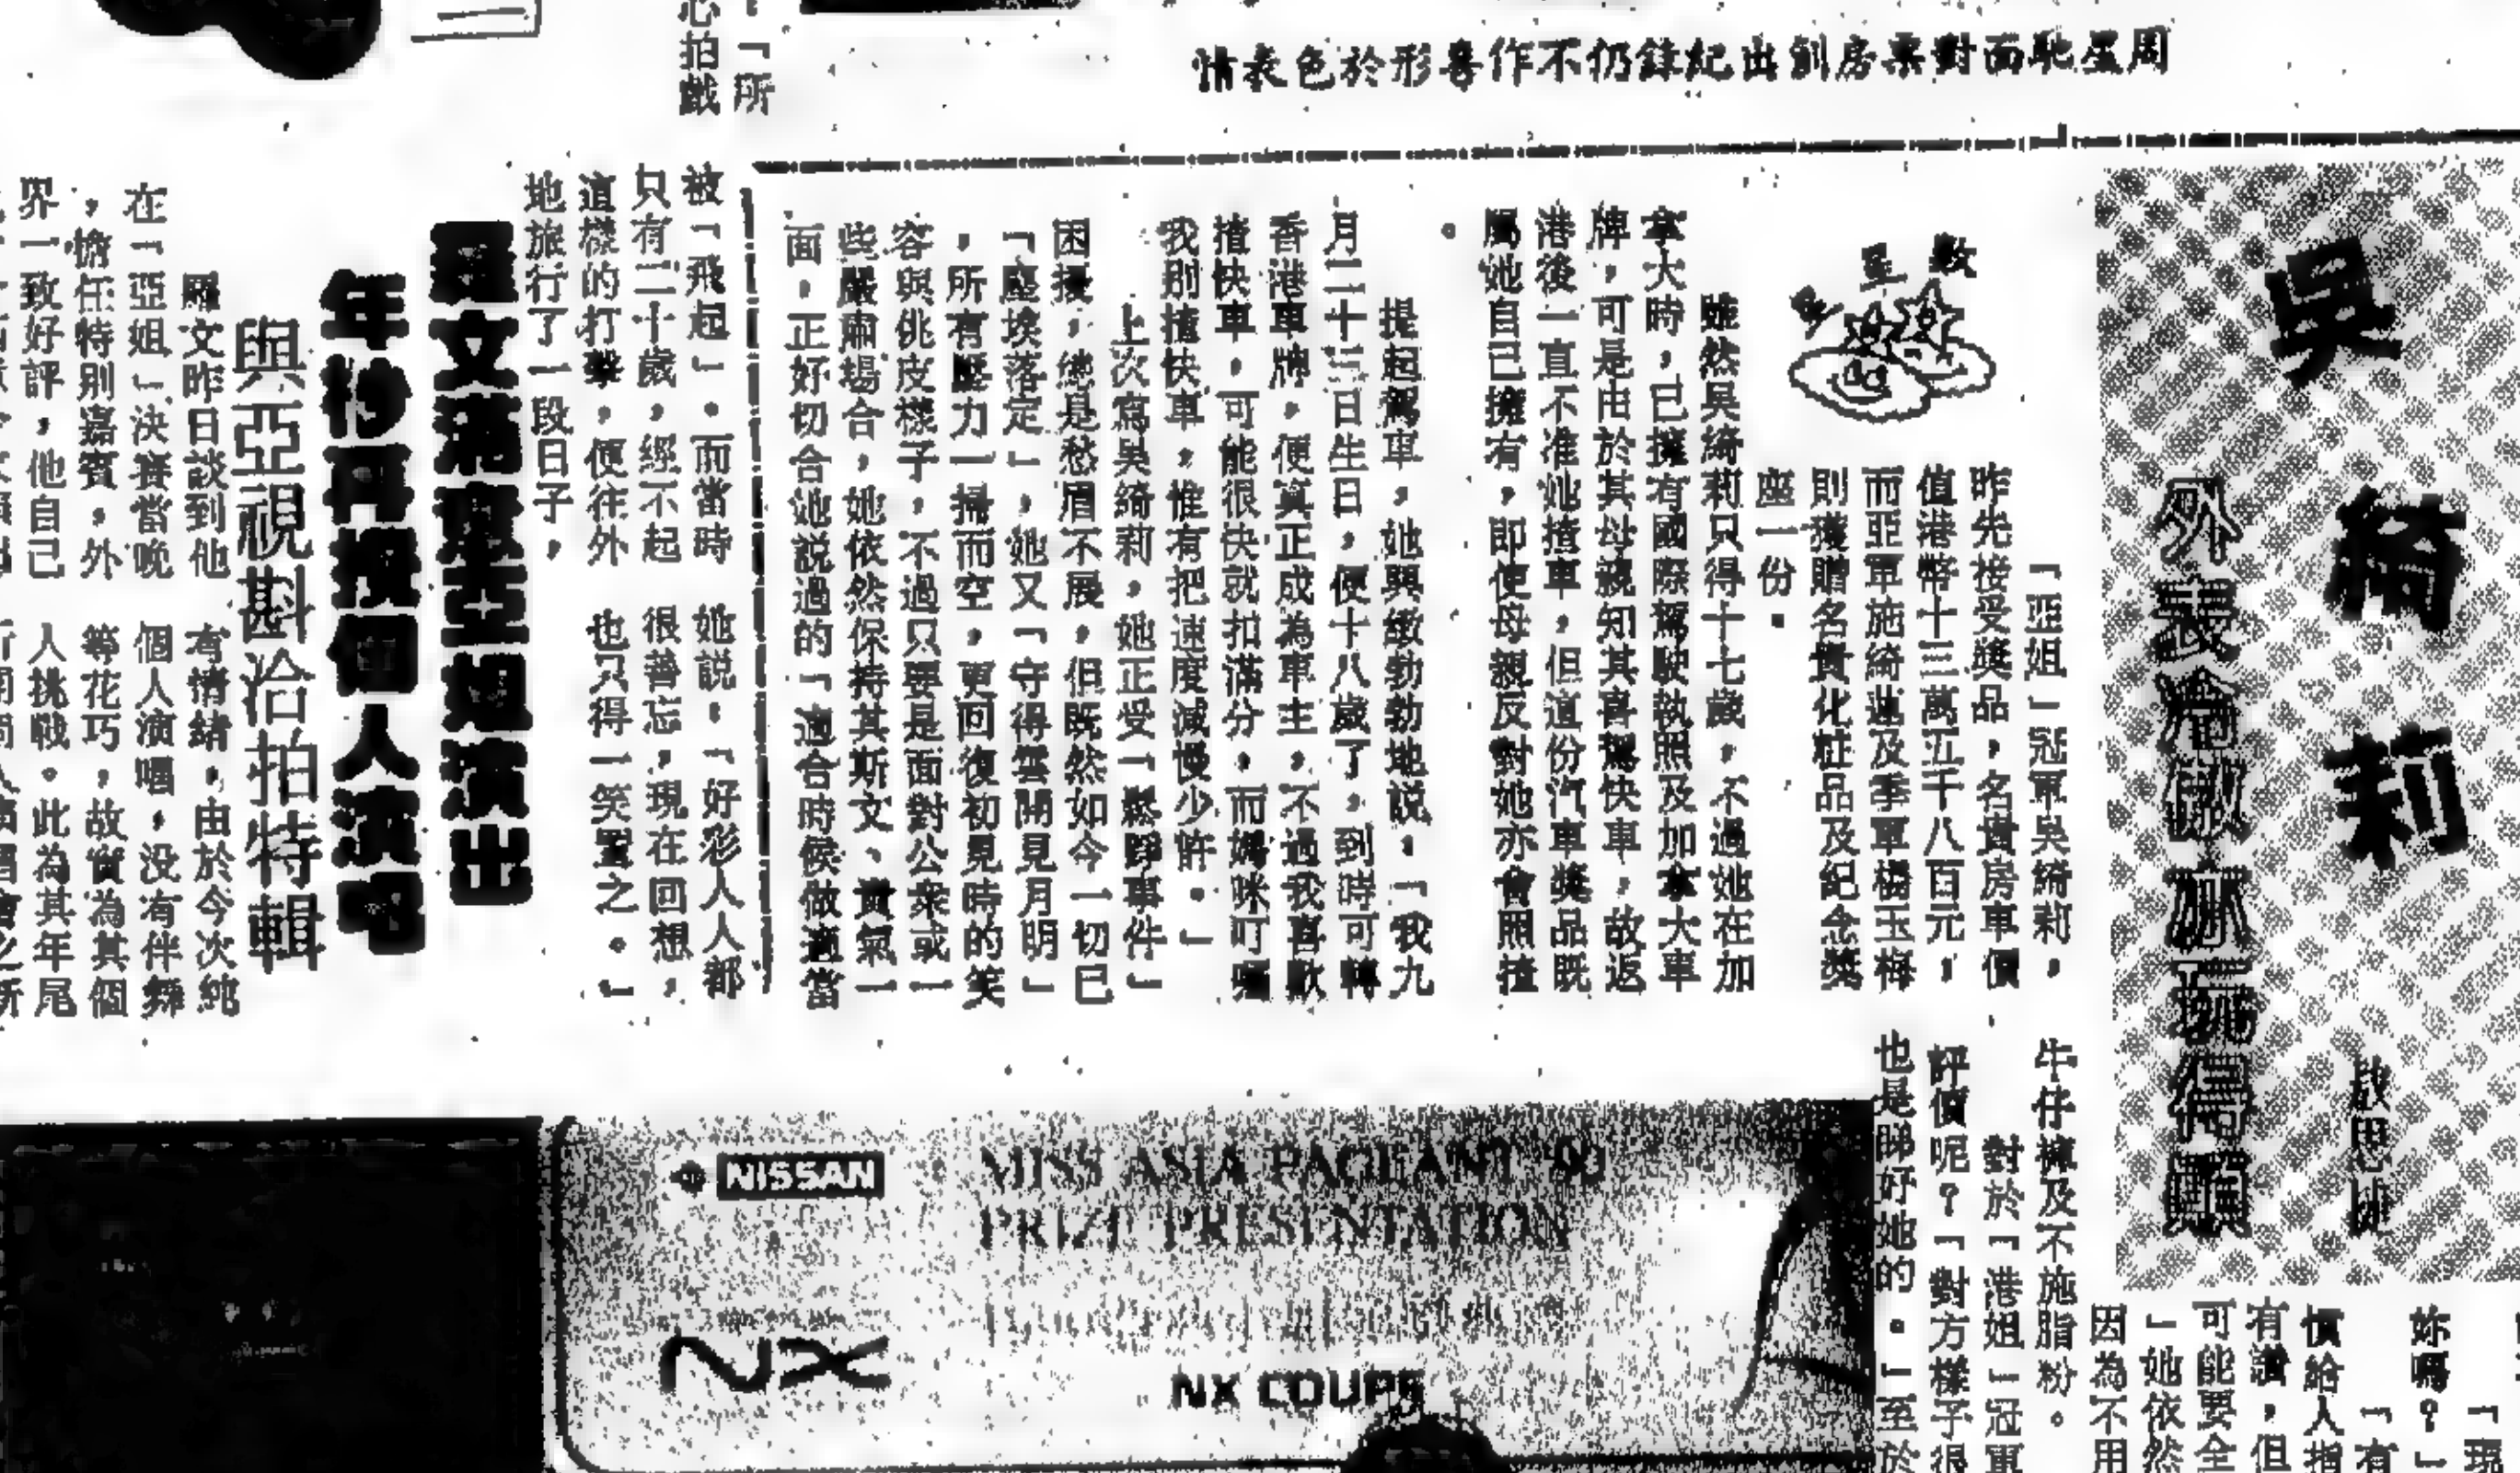 周星馳面對票房創出紀錄仍不作喜形於色表情
吳綺莉
外表冷傲亦玩得顛
「亞姐」冠軍吳綺莉，
昨先接受獎品，名貴房車價
值港幣十三萬五千八百元，
而亞軍施綺蓮及季軍楊玉梅
則獲贈名貴化粧品及紀念獎
座一份。
雖然吳綺莉只得十七歲，不過她在加
拿大時，已擁有國際駕駛執照及加拿大車
牌，可是由於其母親知其喜駕快車，故返
港後一直不准她揸車，但這份汽車獎品既
屬她自己擁有，即使母親反對她亦會照揸
。
提起駕車，她興緻勃勃地説：「我九
月二十三日生日，便十八歲了，到時可轉
香港車牌，便真正成為車主，不過我喜歡
揸快車，可能很快就扣滿分，而媽咪叮囑
我别揸快車，惟有把速度減慢少許。」
上次寫吳綺莉，她正受「鬆踭事件」
困擾，總是愁眉不展，但既然如今一切已
「塵埃落定」，她又「守得雲開見月明」
，所有壓力一掃而空，更回復初見時的笑
容與佻皮樣子，不過只要是面對公衆或一
些嚴肅場合，她依然保持其斯文、貴氣一
面，正好切合她説過的「適合時候做適當
牛仔褲及不施脂粉。
對於「港姐」冠軍
評價呢？「對方樣子很
也是睇好她的。」至於
「現
妳嗎？」
「有
慣給人指
有讚，但
可能要全
」她依然
因為不用
：「所
心拍戲
被「飛起」。而當時
只有二十歲，經不起
這樣的打擊，便往外
地旅行了一段日子，
她說：「好彩人人都
很善忘，現在回想，
也只得一笑置之。」
羅文滿意亞姐演出
年杪再搅個人演唱
與亞視斟洽拍特輯
羅文昨日談到他
在「亞姐」決賽當晚
，擔任特别嘉賓，外
界一致好評，他自己
有情緒，由於今次純
個人演唱，没有伴舞
等花巧，故實為其個
人挑戰。此為其年尾
NISSAN
MISS ASIA PAGEANT '90
PRIZE PRESENTATION
NX
NX COUPE